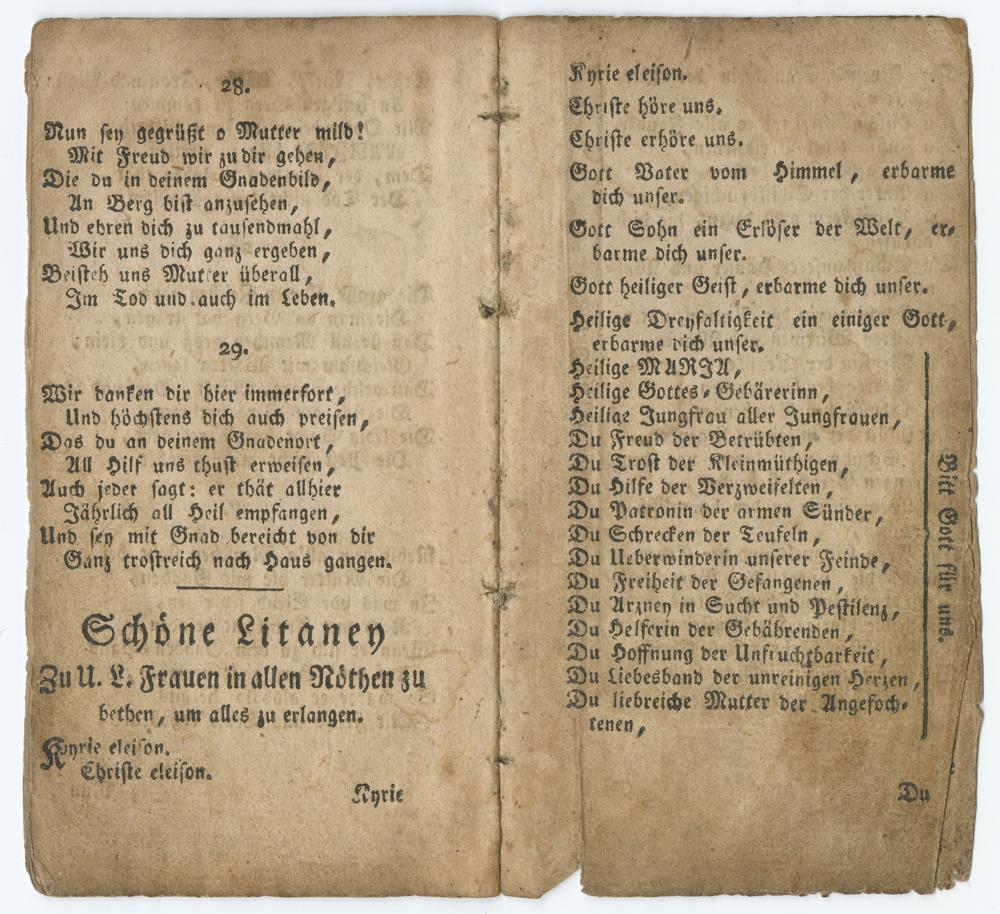 28.
Nun sey gegrüßt o Mutter mild!
Mit Freud wir zu dir gehen,
Die du in deinem Gnadenbild,
An Berg bist anzusehen,
Und ehren dich zu tausendmahl,
Wir uns dich ganz ergeben,
Beisteh uns Mutter überall,
Im Tod und auch im Leben.
29.
Wir danken dir hier immerfort,
Und höchstens dich auch preisen,
Das du an deinem Gnadenort,
All Hilf uns thust erweisen,
Auch jeder sagt: er thät allhier
Jährlich all Heil empfangen,
Und sey mit Gnad bereicht von dir
Ganz trostreich nach Haus gangen.
Schöne Litaney
Zu U. L. Frauen in allen Nöthen zu
bethen, um alles zu erlangen.
Kyrie eleison.
Christe eleison.
Kyrie
Kyrie eleison.
Christe höre uns.
Christe erhöre uns.
Gott Vater vom Himmel, erbarme
dich unser.
Gott Sohn ein Erlöser der Welt, er-
barme dich unser.
Gott heiliger Geist, erbarme dich unser.
Heilige Dreyfaltigkeit ein einiger Gott,
erbarme dich unser.
Heilige MARJA,
Heilige Gottes-Gebärerinn,
Heilige Jungfrau aller Jungfrauen,
Du Freud der Betrübten,
Du Trost der Kleinmüthigen,
Du Hilfe der Verzweifelten,
Du Patronin der armen Sünder,
Du Schrecken der Teufeln,
Du Ueberwinderin unserer Feinde,
Du Freiheit der Gefangenen,
Du Arzney in Sucht und Pestilenz,
Du Helferin der Gebährenden,
Du Hoffnung der Unfruchtbarkeit,
Du Liebesband der unreinigen Herzen,
Du liebreiche Mutter der Angefoch-
tenen,
Bitt Gott für uns.
Du